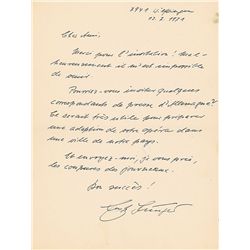 Cher Ami.
Merci pour l'invitation! Mal-
heureusement il m'est impossible
de venir
Pouvez-vous inviter quelques
correspondants de presse d'Allemagne?
Ce serait très utile pour préparer
une adoption de votre opéra dans
une ville de notre pays.
Et envoyez-moi, je vous prie,
les coupures des journeaux.
Bon succès!